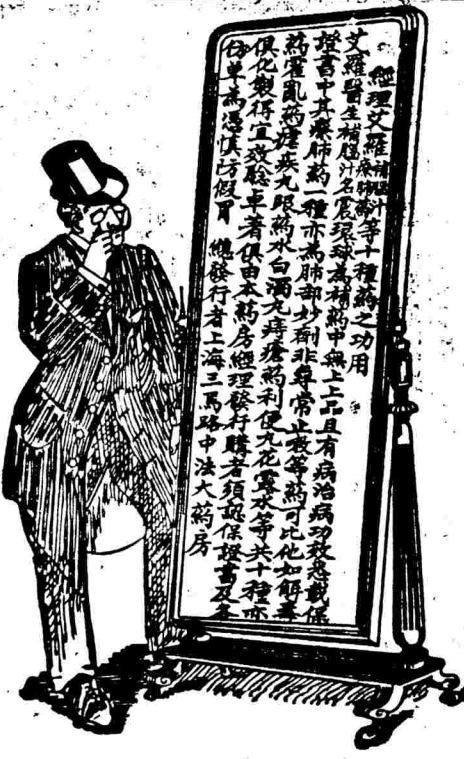 經理艾羅補腦汁療肺藥等十種藥之功用
艾羅醫生補腦汁名震環球為補藥中無上上品且有病治病功效悉載保
證書中其療肺藥一種亦為肺部妙劑非尋常止咳等藥可比他如解毒
藥霍亂藥瘧疾丸眼藥水白濁丸痔瘡藥利便丸花露水等共十種亦
俱化製得宜效驗卓著俱由本藥房經理發行購者須認保證書及
仿單為憑慎防假冒 總發行者上海三馬路中法大藥房